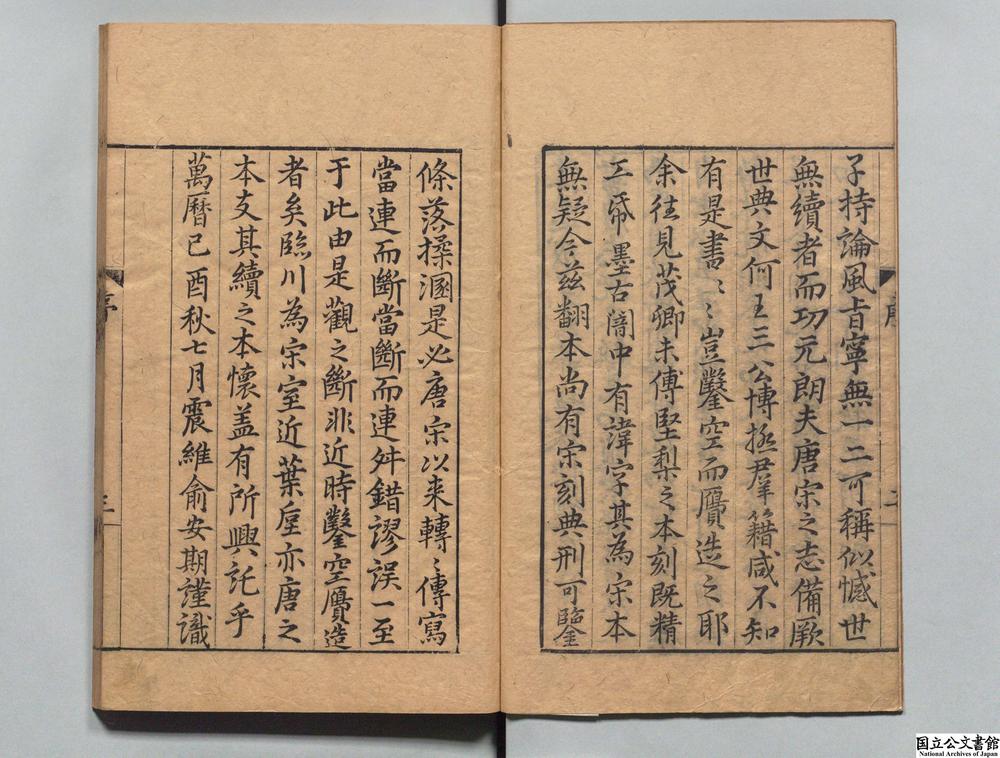 子持論風旨寧無一二可稱似憾世
無續者而功元朗夫唐宋之志備厥
世典文何王三公博極羣籍咸不知
有是書〻豈鑿空而贗造之耶
余往見茂卿未傅堅梨之本刻既精
工帋墨古闇中有諱字其為宋本
無疑今茲翻本尚有宋刻典刑可鑒
序
三
條落操溷是必唐宋以来轉〻傳寫
當連而斷當斷而連舛錯謬誤一至
于此由是觀之斷非近時鑿空贗造
者矣臨川為宋室近葉垕亦唐之
本支其續之本懷盖有所興託乎
萬曆己酉秋七月震維俞安期謹識
国立公文書館
National Archives of Japan